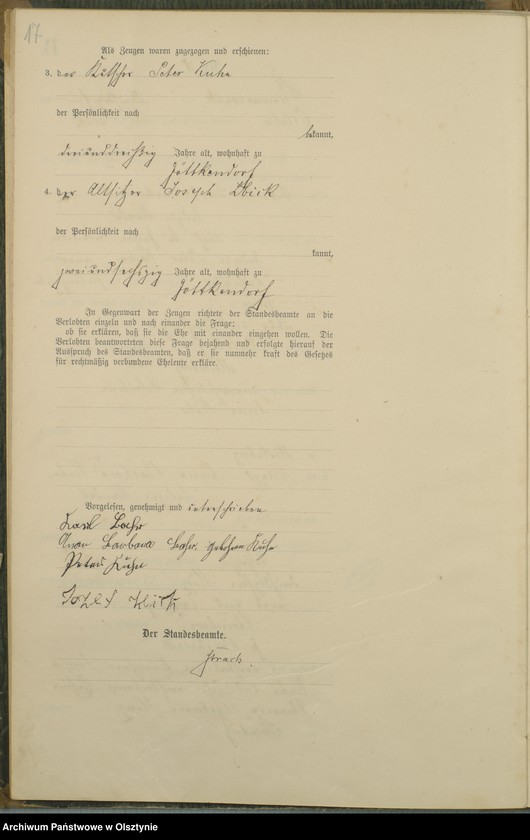 17
Als Zeugen waren zugezogen und erschienen:
3. der Kutscher Peter Kuhn
der Persönlichkeit nach
bekannt,
dreiunddreißig Jahre alt, wohnhaft zu
Göttkendorf
4. der Altsitzer Joseph
der Persönlichkeit nach
kannt,
zweiundsechszig Jahre alt, wohnhaft zu
Göttkendorf
In Gegenwart der Zeugen richtete der Standesbeamte an die
Verlobten einzeln und nach einander die Frage:
ob sie erklären, daß sie die Ehe mit einander eingehen wollen. Die
Verlobten beantworteten diese Frage bejahend und erfolgte hierauf der
Ausspruch des Standesbeamten, daß er sie nunmehr kraft des Gesetzes
für rechtmäßig verbundene Eheleute erkläre.
Vorgelesen, genehmigt und unterschrieben
Karl
Barbara geborene Kuhn
Peter Kuhn
Der Standesbeamte.
Archiwum Państwowe w Olsztynie